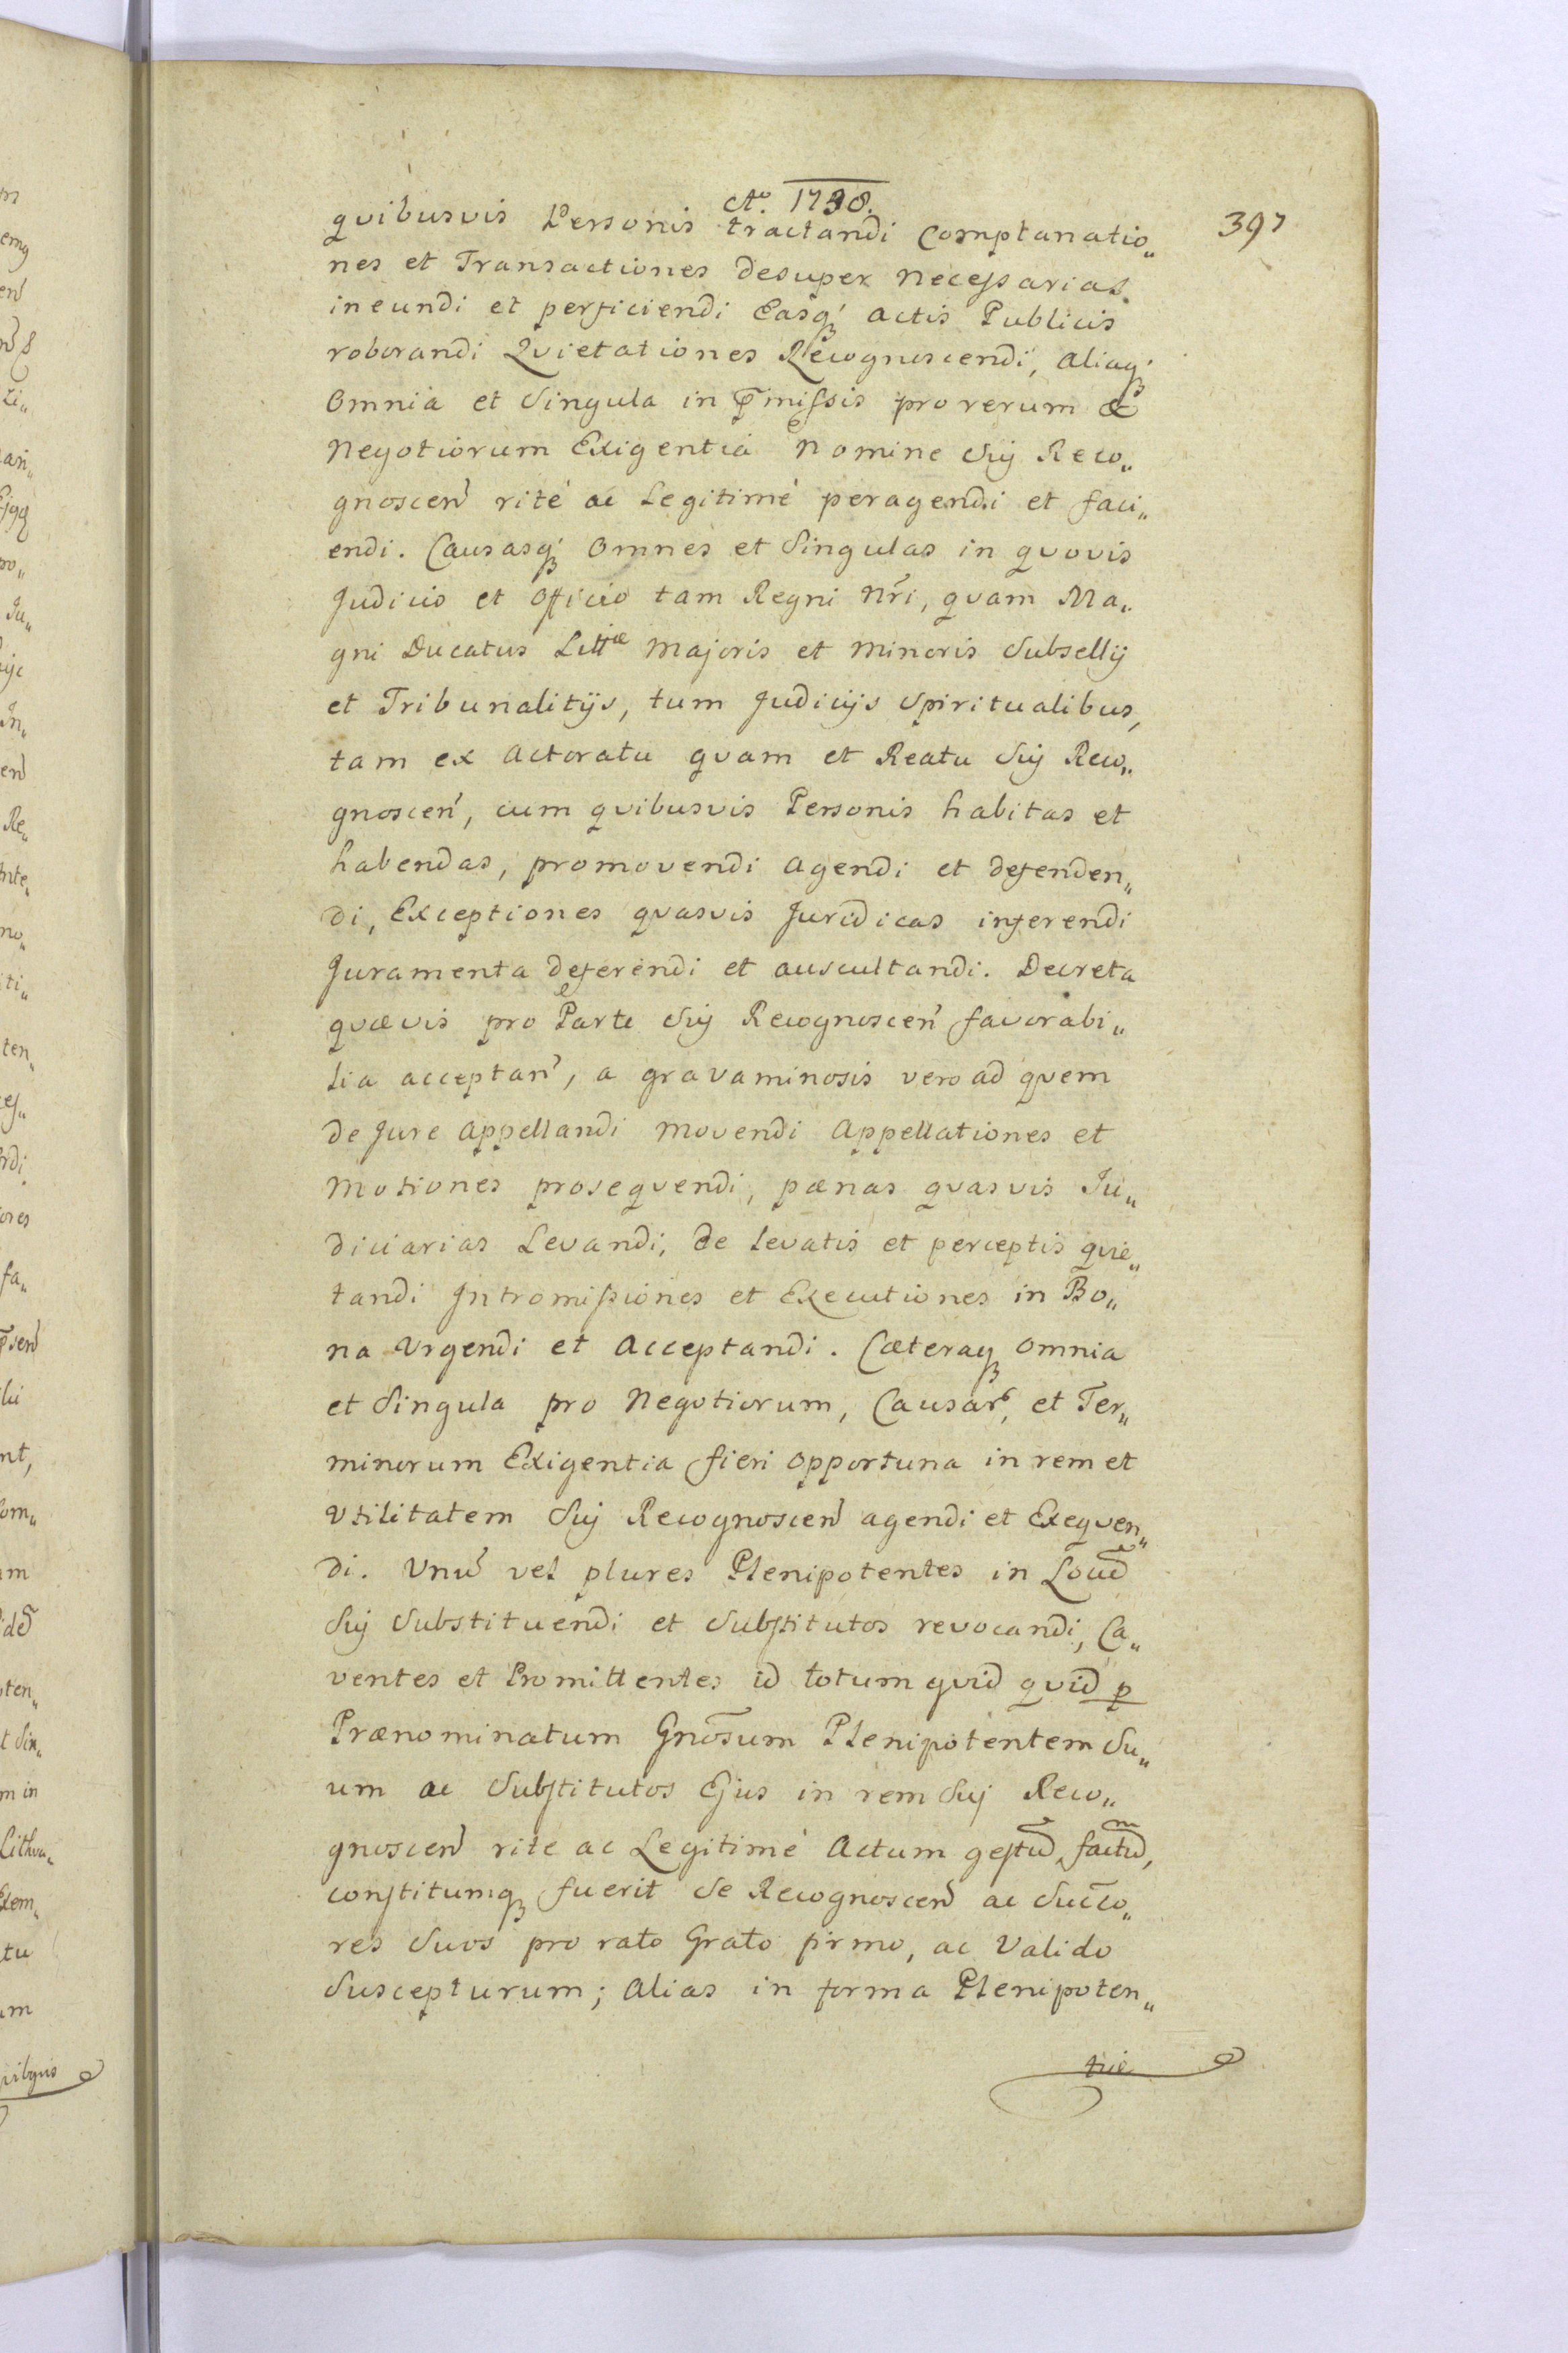 Aº. 1738.
397
quibusvis Personis tractandi Complanatio„
nes et Transactiones desuper necessarias
ineundi et perficiendi Easq́ꝫ actis Publicis
roborandi Quietationes Recognoscendi, aliaq́ꝫ
omnia et Singula in p̄missis pro rerum &
Negotiorum Exigentia Nomine Sui Reco„
gnoscen̄ rité ac Legitimé peragendi et faci„
endi. Causasq́ꝫ omnes et Singulas in quovis
Judicio et Officio tam Regni Nr̄i, quam Ma„
gni Ducatus Littæ Majoris et Minoris Subsellij
et Tribunalitijs, tum Judicijs Spiritualibus,
tam ex Actoratu quam et Reatu Sui Reco„
gnoscen̄, cum quibusvis Personis habitas et
habendas, promovendi agendi et defenden„
di, Exceptiones quasvis Juridicas inferendi
Juramenta deferendi et auscultandi. Decreta
quævis pro Parte Sui Recognoscen̄ favorabi„
lia acceptan̄, a gravaminosis vero ad quem
de Jure appellandi movendi Appellationes et
Motiones prosequendi, pænas quasvis Ju„
diciarias Levandi, de levatis et perceptis quie„
tandi Intromissiones et Executiones in Bo„
na Urgendi et Acceptandi. Cæteraqꝫ omnia
et Singula pro Negotiorum, Causar̄, et Ter„
minorum Exigentia fieri opportuna in rem et
Utilitatem Sui Recognoscen̄ agendi et Exequen„
di. Unū vel plures Plenipotentes in Locū
Sui Substituendi et Substitutos revocandi, Ca„
ventes et Promittentes id totum quid quid ꝑ
Prænominatum Gnōsum Plenipotentem Su„
um ac Substitutos Ejus in rem Sui Reco„
gnoscen̄ rite ac Legitimé Actum gestū, factū,
constitumqꝫ fuerit Se Recognoscen̄ ac Succo„
res Suos pro rato Grato firmo, ac Valido
Suscepturum; Alias in forma Plenipoten„
tiæ